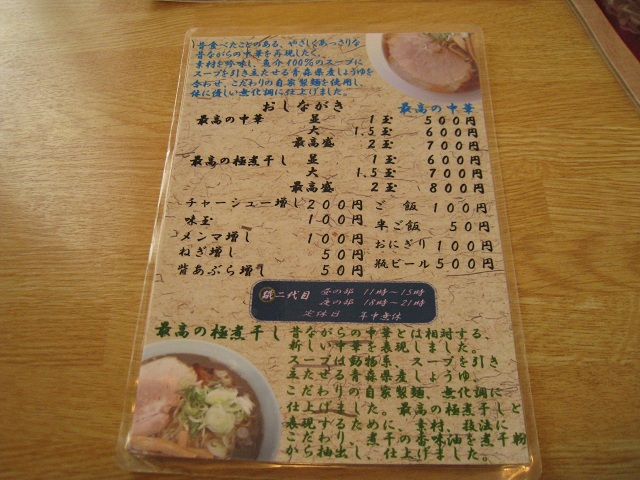 昔食べたことのある、やさしくあっさりな
昔ながらの中華を再現したく、
素材を吟味し、魚介100%のスープに
スープを引き立たせる青森県産しょうゆを
合わせ、こだわりの自家製麺を使用し、
体に優しい無化調に仕上げました。
おしながき 最高の中華
最高の中華 並 1玉 500円
大 1.5玉 600円
最高盛 2玉 700円
最高の極煮干し 並 1玉 600円
大 1.5玉 700円
最高盛 2玉 800円
チャーシュー増し 200円 ご飯 100円
味玉 100円 半ご飯 50円
メンマ増し 100円 おにぎり 100円
ねぎ増し 50円 瓶ビール 500円
背あぶら増し 50円
二代目 昼の部 11時～15時
夜の部 18時～21時
定休日 年中無休
最高の極煮干し 昔ながらの中華とは相対する、
新しい中華を表現しました。
スープは動物系、スープを引き
立たせる青森県産しょうゆ、
こだわりの自家製麺、無化調に
仕上げました。最高の極煮干しと
表現するために、素材、技法に
こだわり、煮干の香味油を煮干粉
から抽出し、仕上げました。